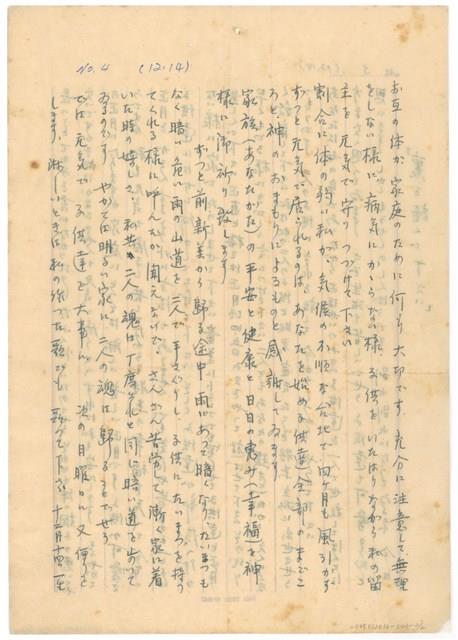 No. 4 (12.14)
お互の体が家庭のために何より大切です 充分に注意して、無理
をしない様に 病気にかゝらない様 子供をいたはりながら私の留
主を元気で守りつづけて下さい
割合に体の弱い私が、気候の不順な台北で四ヶ月も風引かず
ずっと元気で居られるのは、あなたを始め子供達全部のまごこ
ろと神のおまもりによるものと感謝してゐます
家族(あなたがた)の平安と健康と日日の恵み(幸福)を神
様に御祈り致します
ずっと前新美から歸る途中雨にあって暗くなり、たいまつも
なく暗い危い雨の山道を二人で手さぐりし、子供にたいまつを持っ
てくれる様に呼んだが聞えないで、さんざん苦労して漸く家に着
いた時の嬉しさ、私共二人の魂は丁度それと同じに暗い道を歩いて
ゐるのです やがては明るい家に二人の魂は歸ることでせう
では元気で 子供達を大事に、 次の日曜日に又何
します、淋しいときは私の作った歌でも歌って下さい 十二月十四日 一生